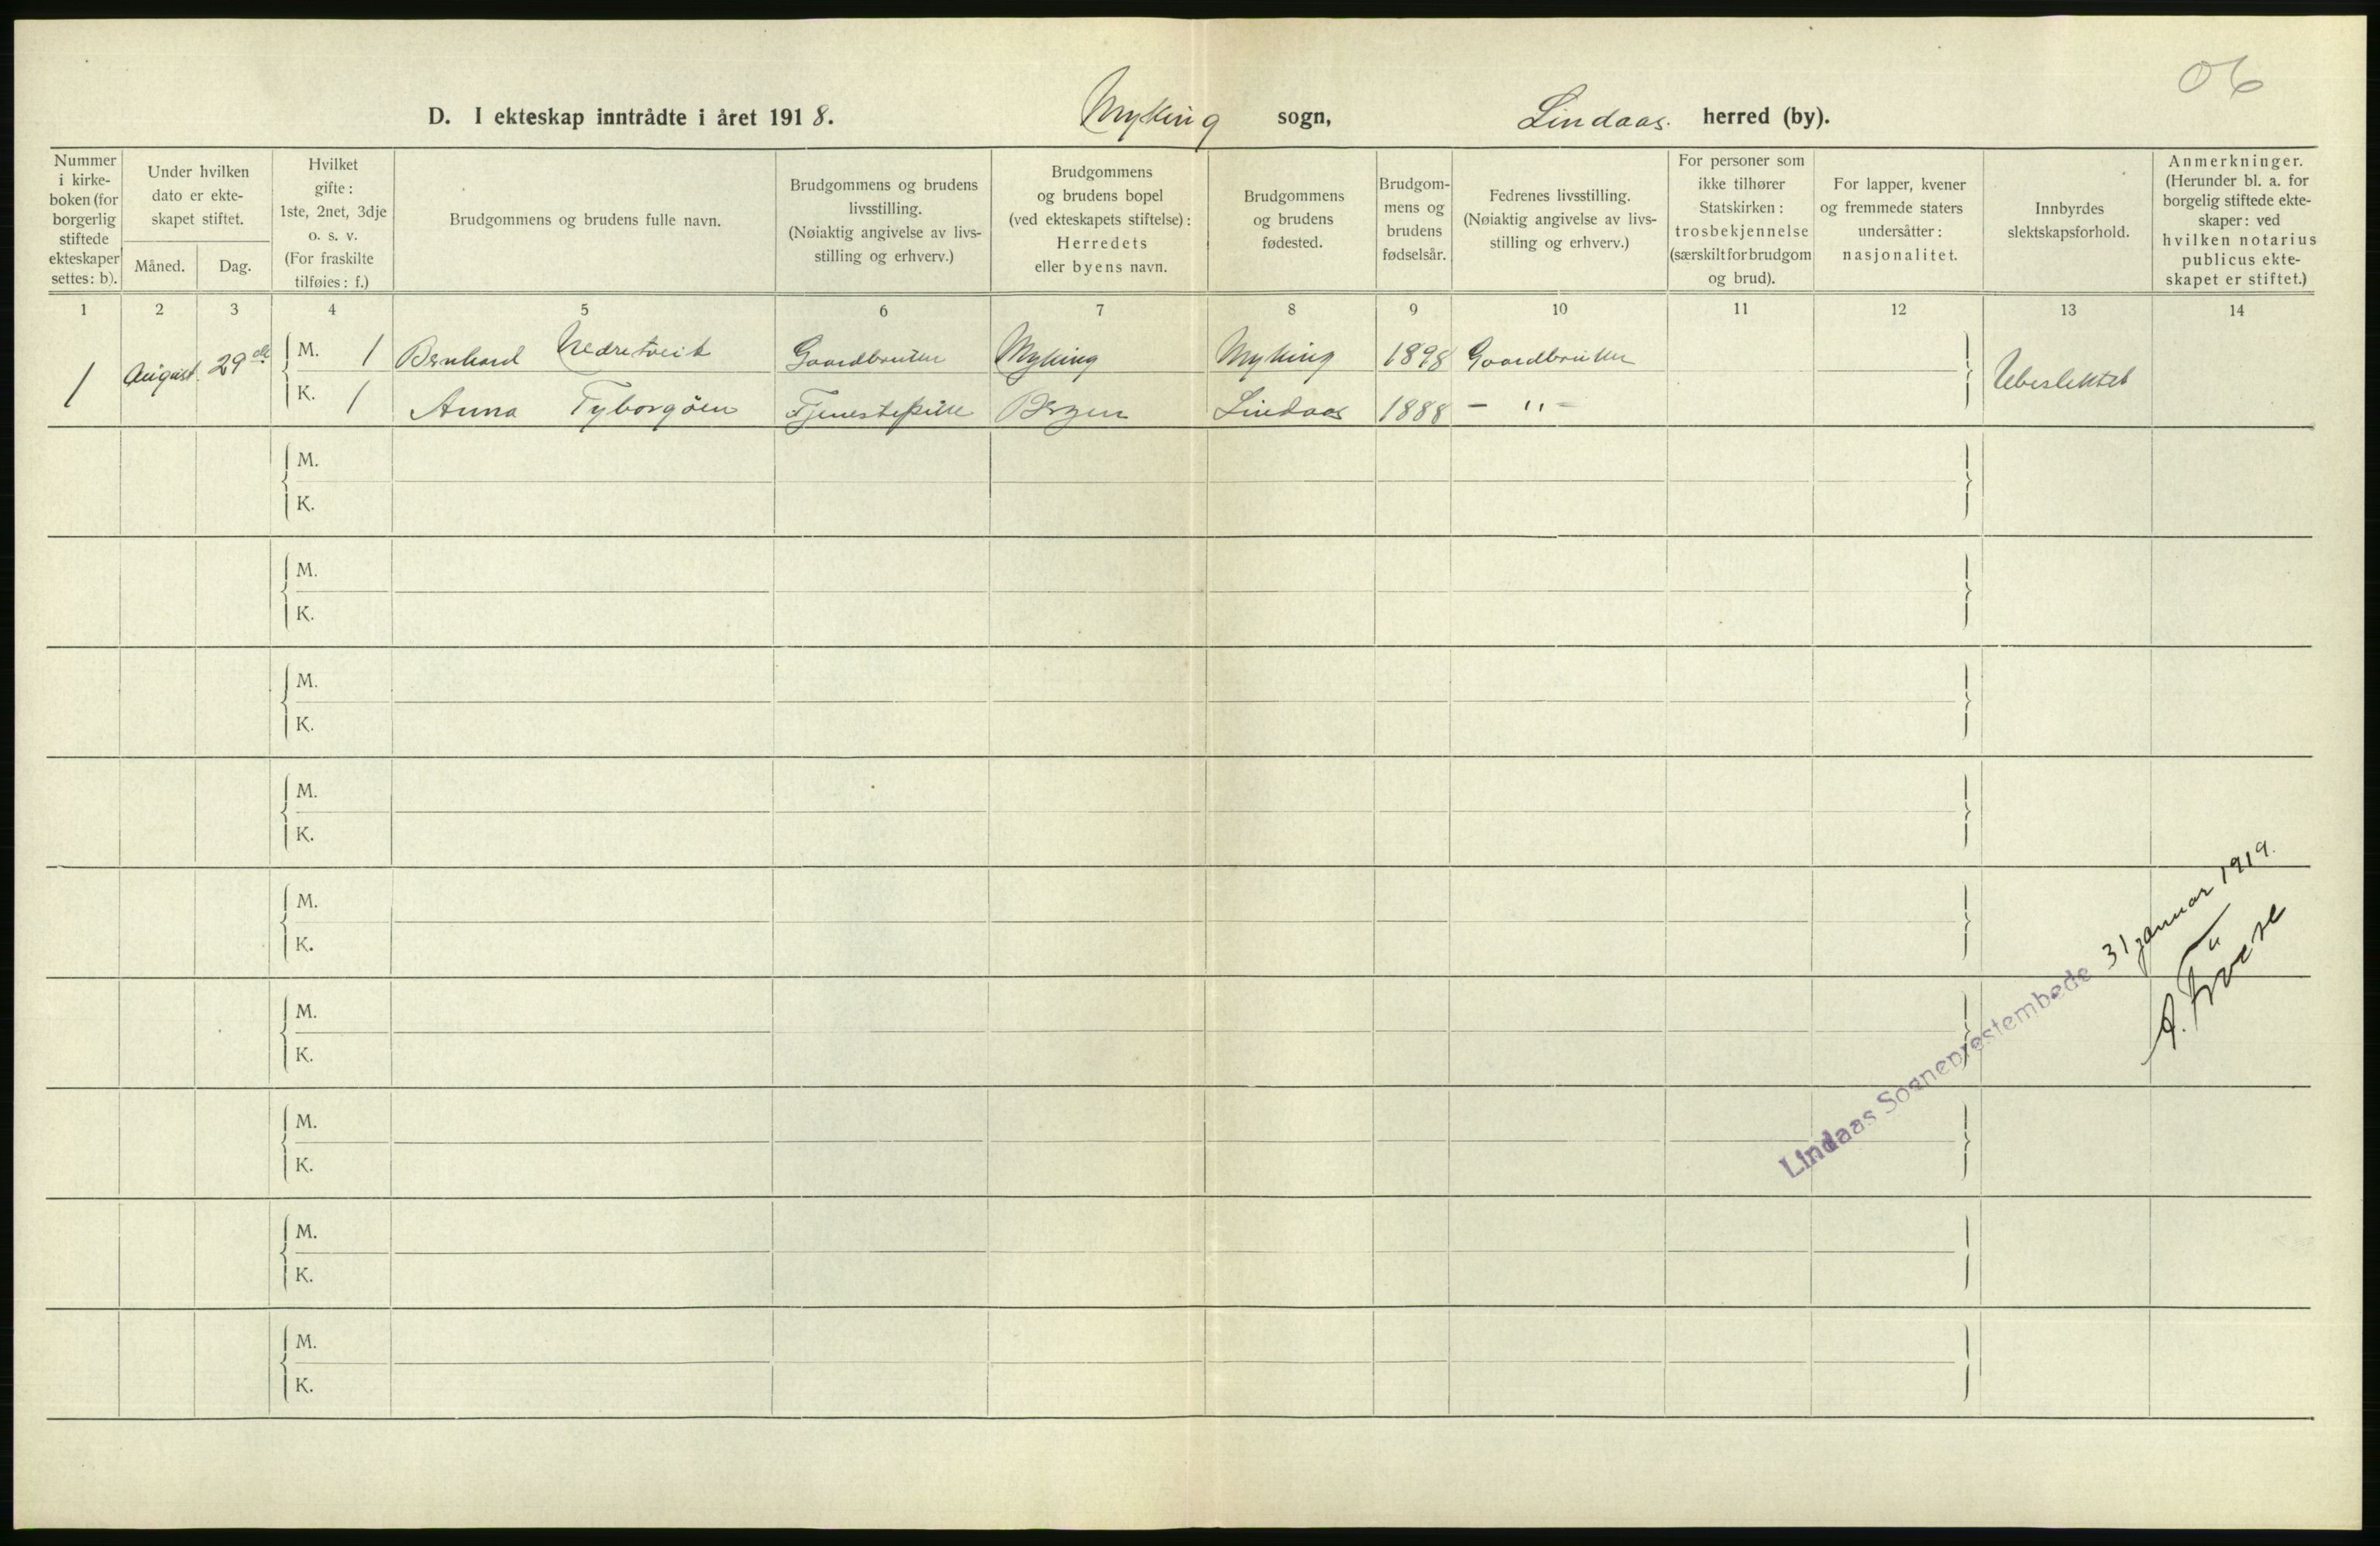 06
D. I ekteskap inntrådte i året 1918. Myking sogn, Lindaas. herred (by).
Nummer
i kirke-
boken (for
borgerlig
stiftede
ekteskaper
settes: b).
Under hvilken
dato er ekte-
skapet stiftet.
Måned. Dag.
Hvilket
gifte:
1ste, 2net, 3dje
o. s. v.
(For fraskilte
tilføies: f.)
Brudgommens og brudens fulle navn.
Brudgommens og brudens
livsstilling.
(Nøiaktig angivelse av livs-
stilling og erhverv.)
Brudgommens
og brudens bopel
(ved ekteskapets stiftelse):
Herredets
eller byens navn.
Brudgommens
og brudens
fødested.
Brudgom-
mens og
brudens
fødselsår.
Fedrenes livsstilling.
(Nøiaktig angivelse av livs-
stilling og erhverv.)
For personer som
ikke tilhører
Statskirken:
trosbekjennelse
(særskilt for brudgom
og brud).
For lapper, kvener
og fremmede staters
undersåtter:
nasjonalitet.
Innbyrdes
slektskapsforhold.
Anmerkninger.
(Herunder bl. a. for
borgelig stiftede ekte-
skaper: ved
hvilken notarius
publicus ekte-
skapet er stiftet.)
1 2 3 4 5 6 7 8 9 10 11 12 13 14
1 August. 29de M. 1 Bernhard Nedretveit Gaardbruker Myking Myking 1898 Gaardbruker Ubeslektet
K. 1 Anna Tyborgöen Tjenestepike Bergen Lindaas 1888 - " -
M.
K.
M.
K.
M.
K.
M.
K.
M.
K.
M.
K.
M.
K.
M.
K.
M.
K.
Lindaas Sogneprestembede 31 januar 1919.